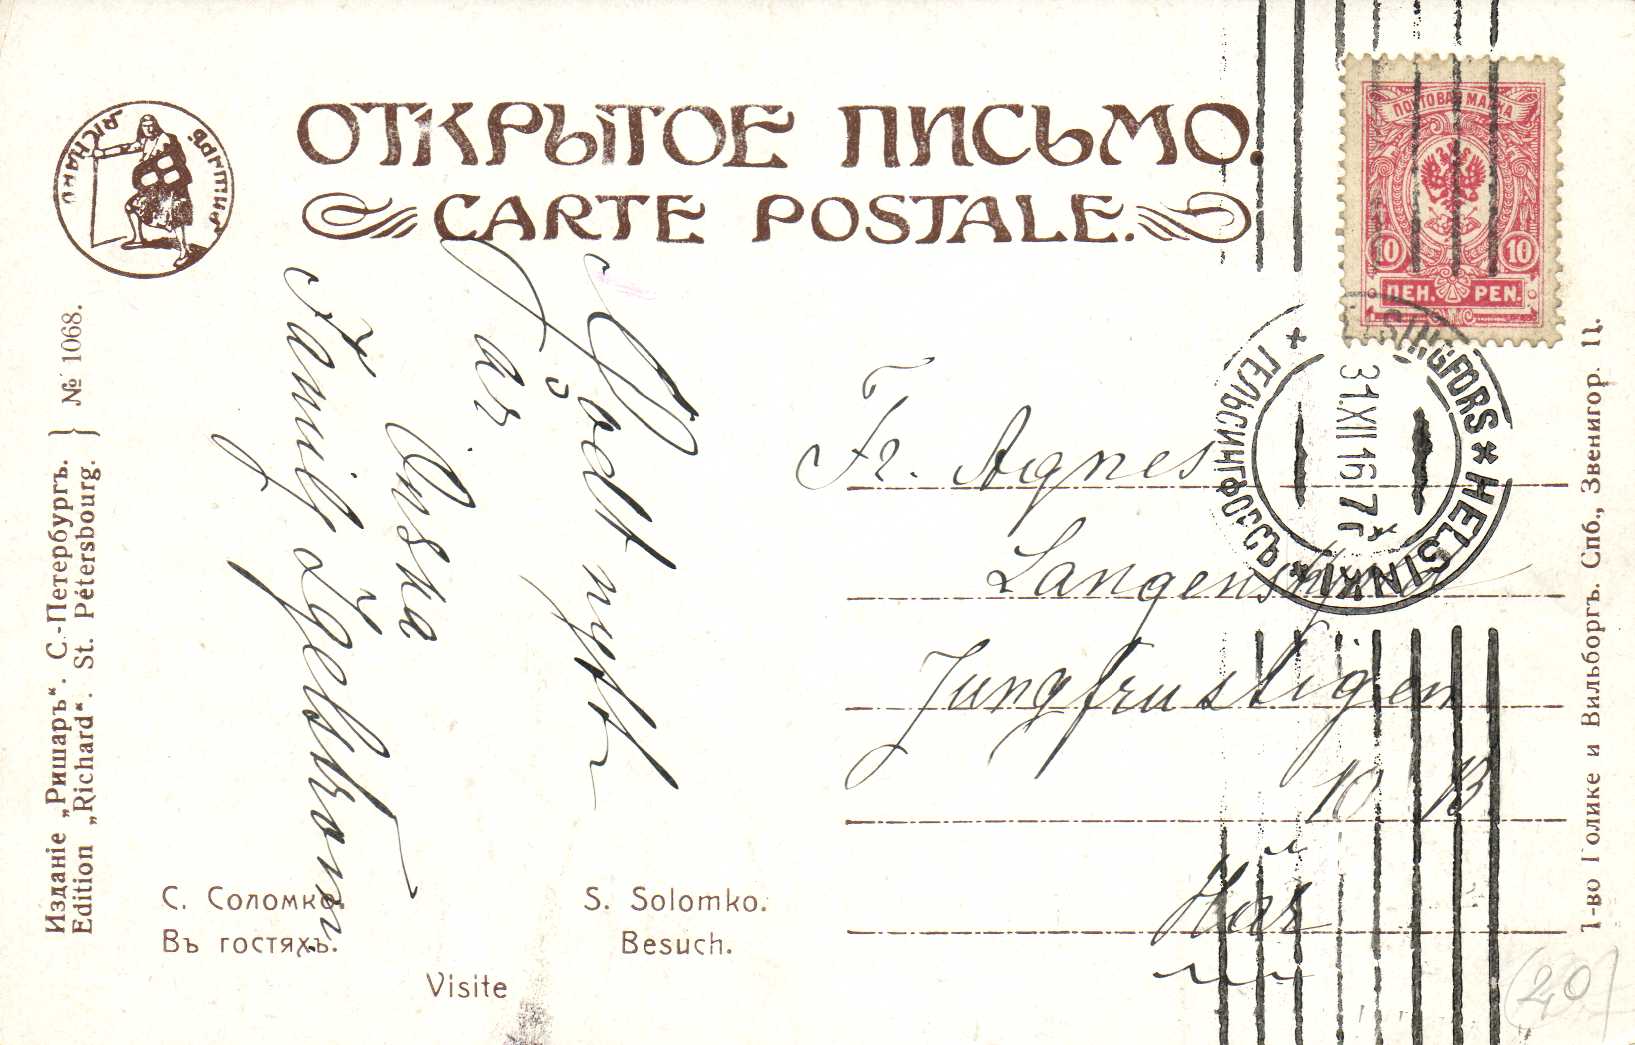 ОТКРЫТОЕ ПИСЬМО.
CARTE POSTALE.
„RICHARD“
„РИШАРЪ“
ПОЧТОВАЯ МАРКА
10 10
ПЕН. PEN.
HELSINGFORS * HELSINKI * ГЕЛЬСИНГФОРСЪ *
31.XII.16 7
Godt nytt
År
Önska
Familj
Fr. Agnes
Jungfrustigen
10 B
Här
Изданіе „Ришаръ“. С.-Петербургъ. } № 1068.
Edition „Richard“. St. Pétersbourg.
Т-во Голике и Вильборгъ. Спб., Звенигор. 11.
С. Соломко.
Въ гостяхъ.
S. Solomko.
Besuch.
Visite
(2,0)